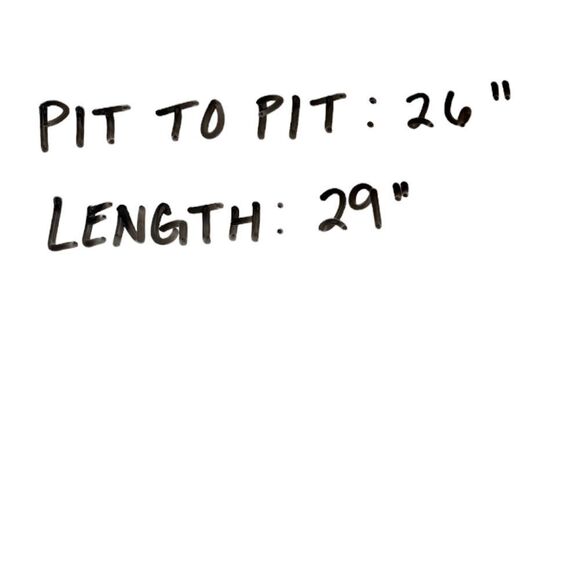 PIT TO PIT: 26"
LENGTH: 29"